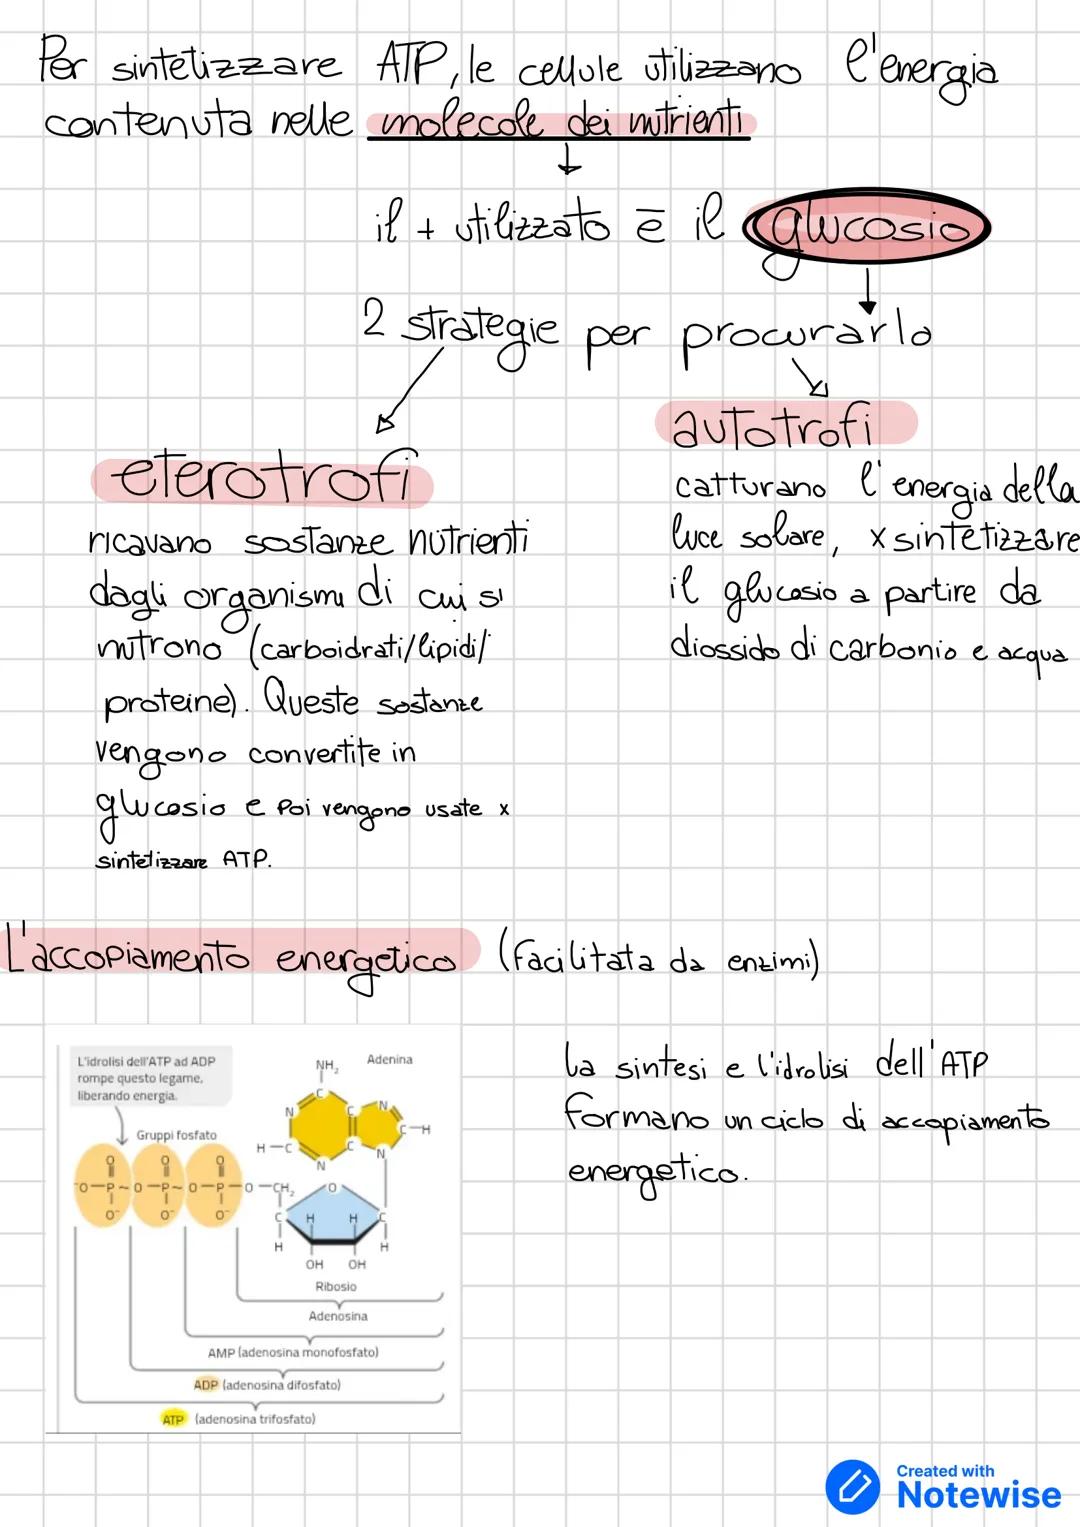 Per sintetizzare ATP, le cellule utilizzano l'energia
contenuta nelle molecole dei nutrienti
il + utilizzato è il glucosio
2 strategie per procurarlo
autotrofi
catturano l'energia della
luce solare, x sintetizzare
il glucosio a partire da
diossido di carbonio e acqua
eterotrofi
ricavano sostanze nutrienti
dagli organismi di cui si
nutrono (carboidrati/lipidi/
proteine). Queste sostanze
vengono convertite in
glucosio e poi vengono usate x
sintetizzare ATP.
L'accopiamento energetico (facilitata da enzimi)
L'idrolisi dell'ATP ad ADP
rompe questo legame,
liberando energia.
Gruppi fosfato
NH₂ Adenina
N C C N C—H
H—C N C N
O O O
⁻O—P~O—P~O—P—O—CH₂ O
O⁻ O⁻ O⁻
C H H C
H H
OH OH
Ribosio
Adenosina
AMP (adenosina monofosfato)
ADP (adenosina difosfato)
ATP (adenosina trifosfato)
La sintesi e l'idrolisi dell'ATP
formano un ciclo di accopiamento
energetico.
Created with
Notewise